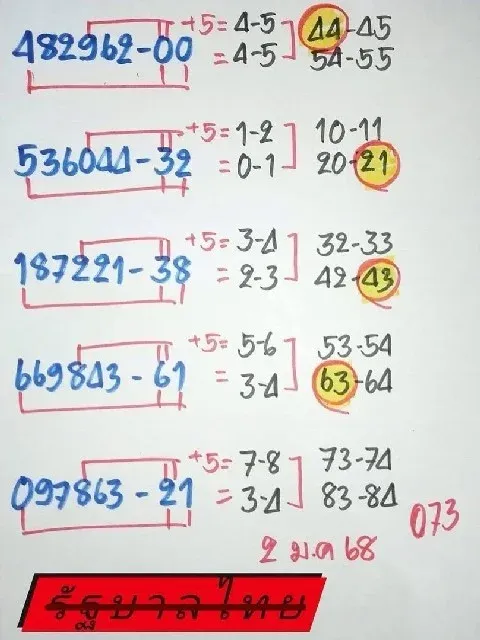 482962-00 +5= 4-5 44-45
= 4-5 54-55
536044-32 +5= 1-2 10-11
= 0-1 20-21
187221-38 +5= 3-4 32-33
= 2-3 42-43
669843-61 +5= 5-6 53-54
= 3-4 63-64
097863-21 +5= 7-8 73-74
= 3-4 83-84
073
2 ม.ค 68
รัฐบาลไทย